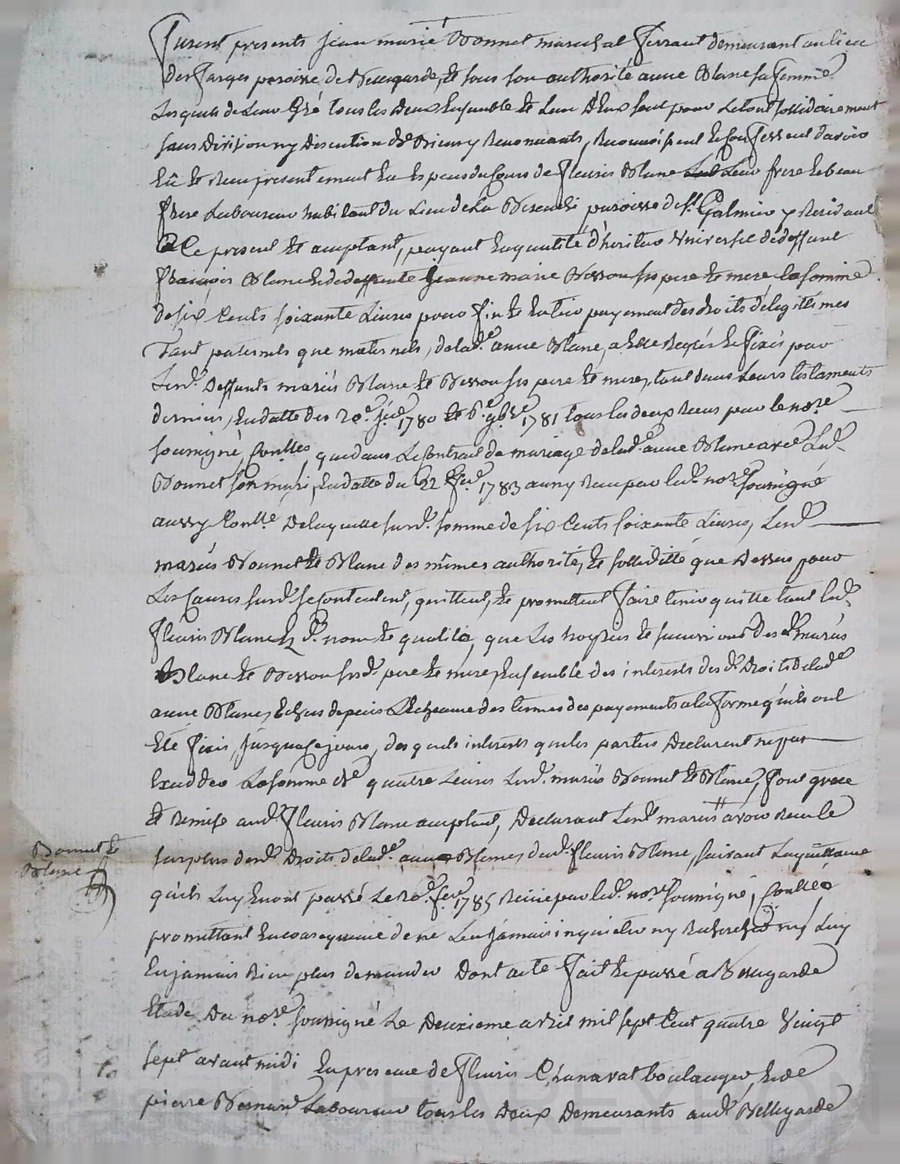 Furent presents Jean marie Bonnet marechal ferrant demeurant au lieu
des farges paroisse de Bellegarde, et sous son authorité anne Blanc sa femme
Lesquels de Leur Gré tous les deux Ensemble et L'un D'eux seul pour Le tout sollidairement
sans Division ny Discution de Biens y Renonceants, Reconnoissent et Confessent d'avoir
Eû et Reçu presentement Et des deniers de fleuris Blanc Leur frere et beau
frere Laboureur habitant du Lieu de La paroisse de st Galmier y Residant
Ce present et acceptant, payant En qualité d'heritier Universel de deffunt
francois Blanc et de deffunte Jeanne marie ses pere et mere La somme
de six Cents soixante Livres pour fin et Entier payement des droits de legitimes
Tant paternels que maternels, de lad. anne Blanc, a Elle Reglés et fixés par
Lesd. Deffunts mariés Blanc et ses pere et mere, tant dans Leurs testaments
derniers, En datte des 20e 1780 et 6e 9bre 1781 tous les deux Recus par le nore
soussigné, Conllés que dans Le Contrat de mariage de lad. anne Blanc avec Led.
Bonnet son mari, En datte du 22 1783 aussy Recu par led. nore soussigné
aussy Conllé De laquelle susd. somme de six Cents soixante Livres, Lesd.
mariés Bonnet et Blanc des mêmes authorité, et sollidité que Dessus pour
Les Causes susd. se contentent, quittent, et promettent faire tenir quitte tant led.
fleuris Blanc Esd. nom et qualité, que Les hoyries et successions desd. mariés
Blanc et susd. pere et mere, Ensemble des interets desd. Droits de lad.
anne Blanc, Echus depuis L'Echeance des termes des payements a la forme qu'ils ont
Eté fixés, Jusqu'a Ce jour, desquels interets que les parties Declarent ne pas
Exceder La somme de quatre Livres Lesd. mariés Bonnet et Blanc, font grace
et Remise aud. fleuris Blanc acceptant, Declarant Lesd. mariés avoir Recu le
surplus desd. Droits de lad. anne Blanc dud. fleuris Blanc suivant La quittance
qu'ils Luy En ont passé Le 20e 1785 Recue par led. nore soussigné, Conllée
promettant En consequence de ne Les jamais inquieter ny Rechercher ny Luy
En jamais Rien plus demander Dont acte fait et passé a Bellegarde
Etude Du nore soussigné Le Deuxieme avril mil sept Cent quatre Vingt
sept avant midi En presence de fleuris Chanavat boulanger, Et de
pierre Bernard Laboureur tous les Deux Demeurants aud. Bellegarde
Bonnet et
Blanc